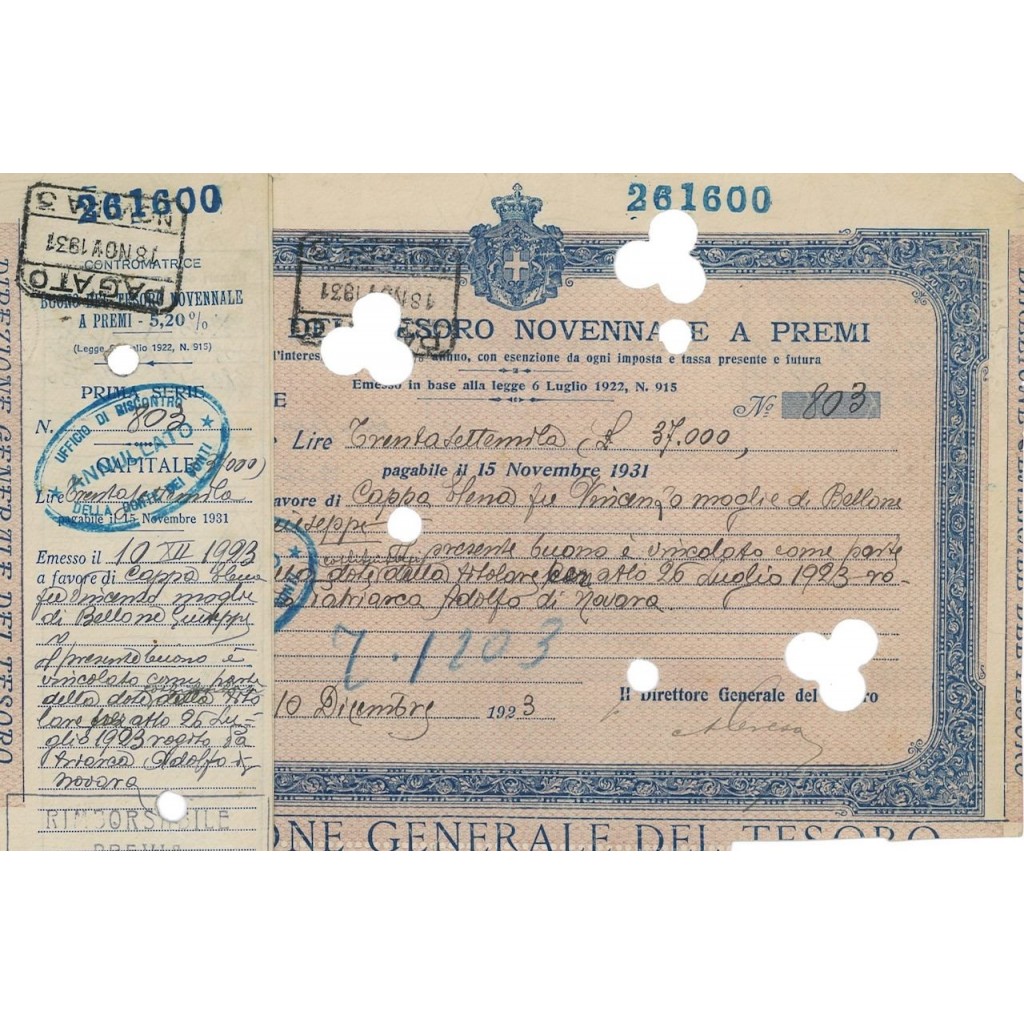 261600
PAGATO
18 NOV 1931
NOVARA 3
CONTROMATRICE
BUONO DEL TESORO NOVENNALE
A PREMI - 5,20 %
(Legge 6 Luglio 1922, N. 915)
PRIMA SERIE
N. 803
UFFICIO DI RISCONTRO
ANNULLATO
DELLA CORTE DEI CONTI
CAPITALE
Lire Trentasettemila
pagabile il 15 Novembre 1931
Emesso il 10 XII 1923
a favore di Cappa Elena
fu Vincenzo moglie
di Bellone Giuseppe
Il presente buono è
vincolato come parte
della dote della tito
lare per atto 26 Lu-
glio 1923 rogito Pa
triarca Adolfo di
Novara
RIMBORSABILE
PREMIA
261600
18 NOV 1931
DEL TESORO NOVENNALE A PREMI
l'interes annuo, con esenzione da ogni imposta e tassa presente e futura
Emesso in base alla legge 6 Luglio 1922, N. 915
E No 803
Lire Trentasettemila (£ 37.000,
pagabile il 15 Novembre 1931
avore di Cappa Elena fu Vincenzo moglie di Bellone
iuseppe
Il presente buono è vincolato come parte
dote della titolare per atto 26 Luglio 1923 ro-
Patriarca Adolfo di Novara
10 Dicembre 1923
Il Direttore Generale del Tesoro
ONE GENERALE DEL TESORO
DIREZIONE GENERALE DEL TESORO